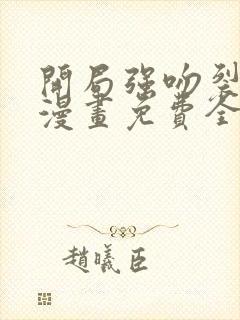 開局強吻裂
漫畫免費全
趙曦臣